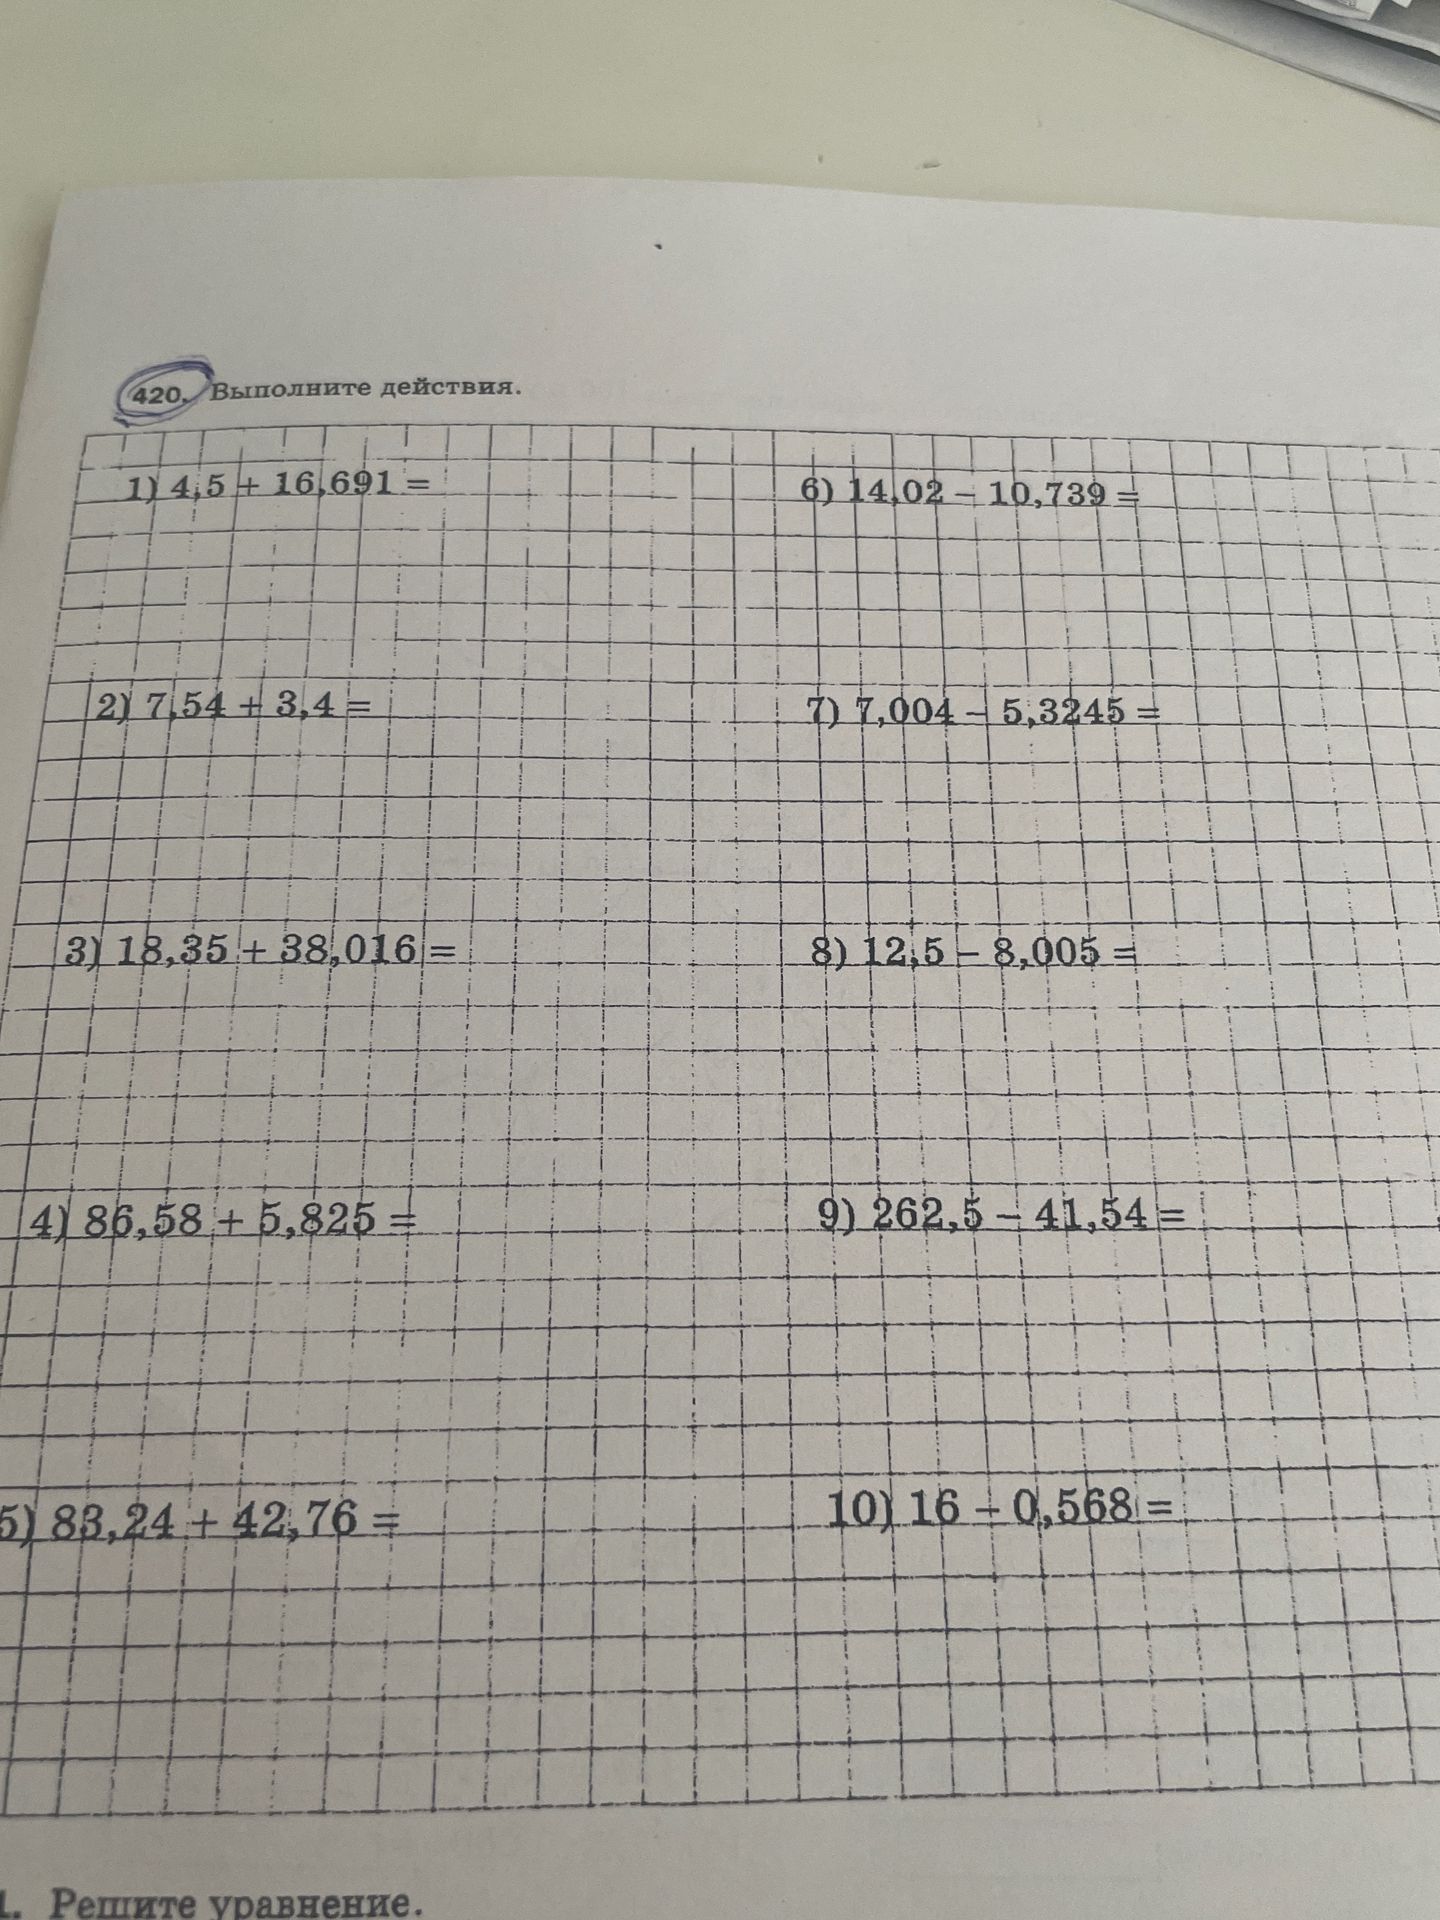 420. Выполните действия.
1) 4,5 + 16,691 =
6) 14,02 – 10,739 =
2) 7,54 + 3,4 =
7) 7,004 – 5,3245 =
3) 18,35 + 38,016 =
8) 12,5 – 8,005 =
4) 86,58 + 5,825 =
9) 262,5 – 41,54 =
5) 83,24 + 42,76 =
10) 16 – 0,568 =
1. Решите уравнение.